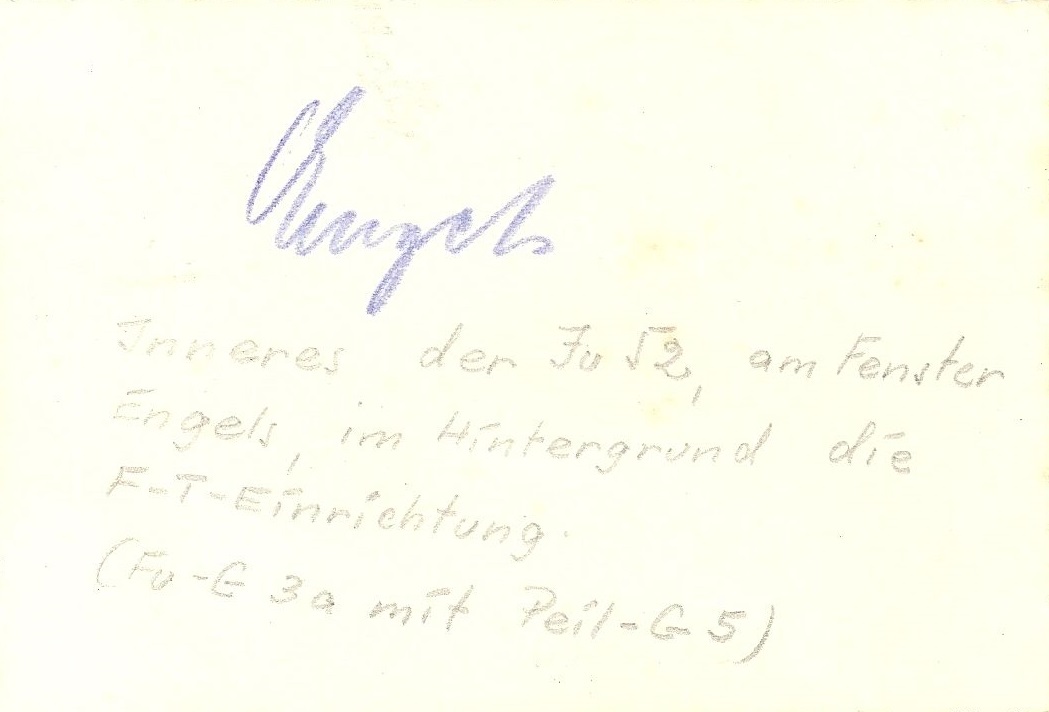 Engels
Inneres der Ju 52, am Fenster
Engels, im Hintergrund die
F-T-Einrichtung.
(Fu-G 3a mit Peil-G 5)